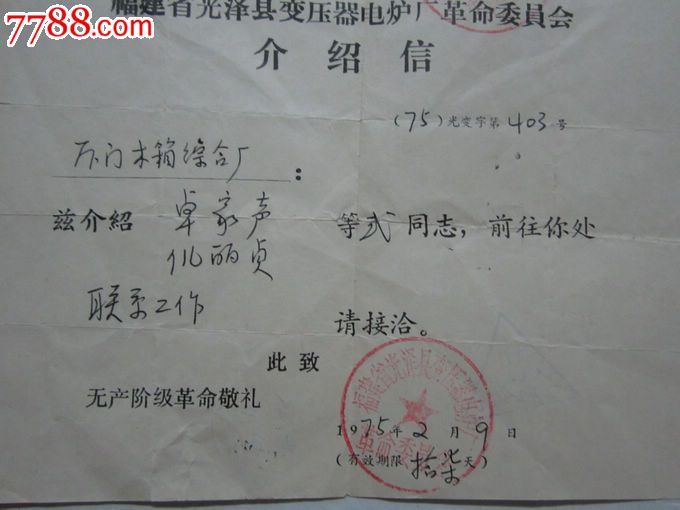 7788.com
福建省光泽县变压器电炉厂革命委員会
介绍信
(75)光变字第403号
木箱综合厂：
兹介紹 卓家声 等弍同志，前往你处
丽贞
联系工作
请接洽。
此致
无产阶级革命敬礼
福建省光泽县变压器电炉厂
革命委员会
1975年2月9日
(有效期限拾柒天)